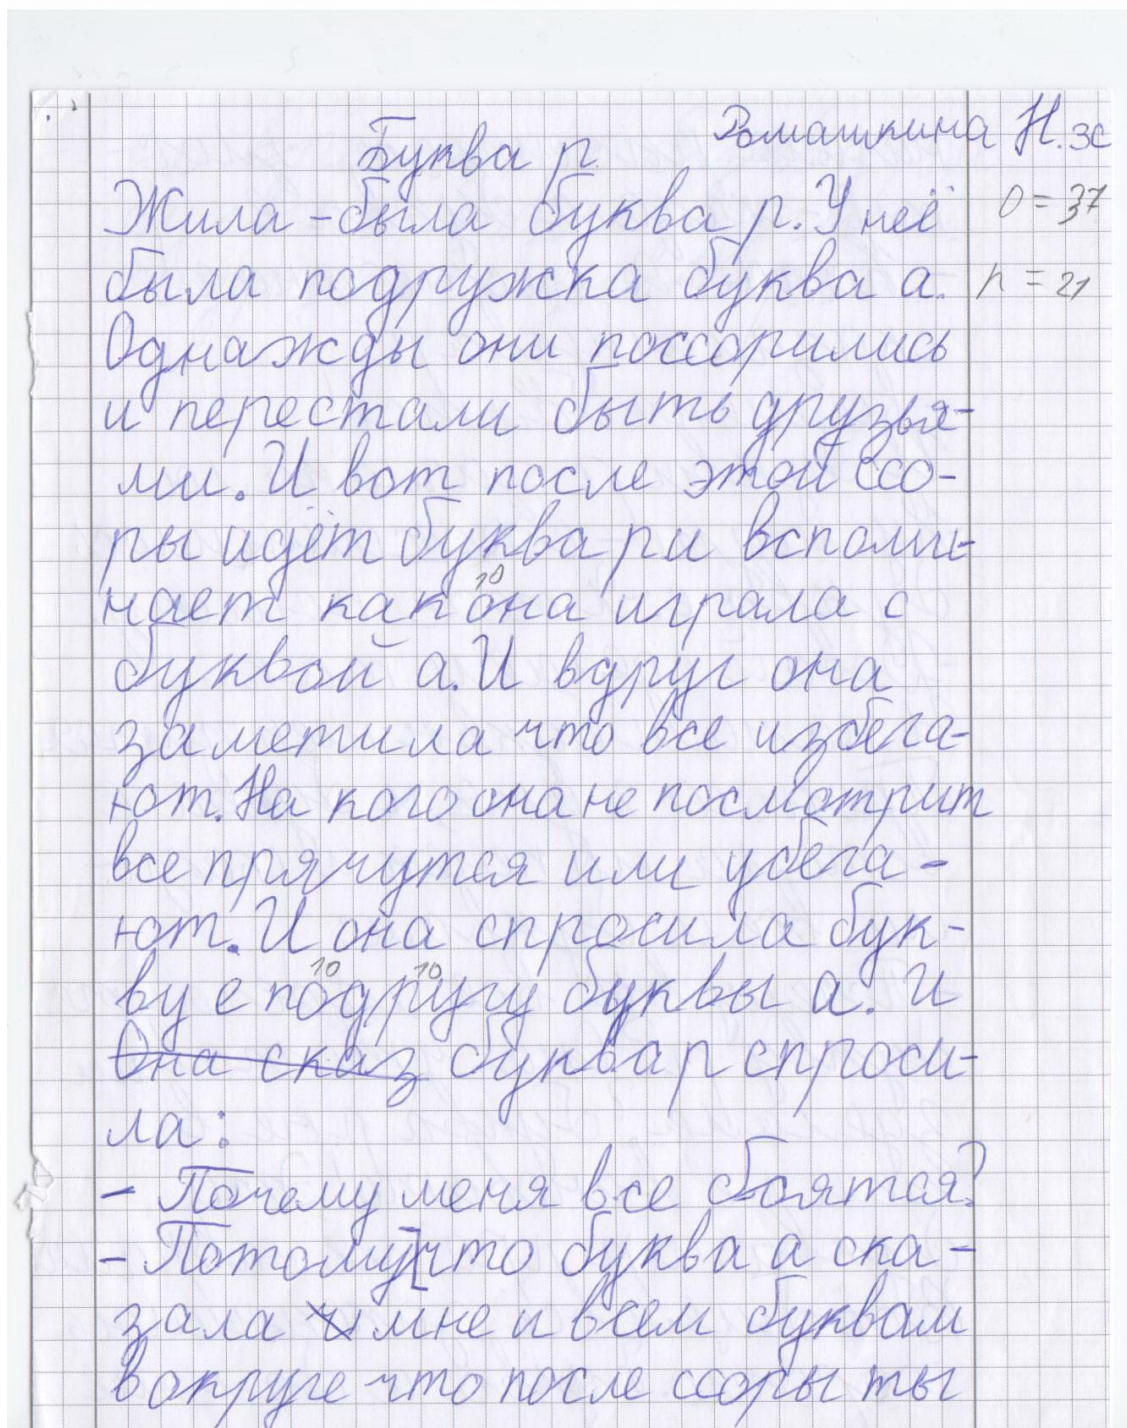 Ромашкина Н. 3с
Буква р.
Жила-была буква р. У неё
О = 37
была подружка буква а.
п = 21
Однажды они поссорились
и перестали быть друзья-
ми. И вот после этой ссо-
ры идёт буква р и вспоми-
нает как она играла с
10
буквой а. И вдруг она
заметила что все избега-
ют. На кого она не посмотрит
все прячутся или убега-
ют. И она спросила бук-
ву е подругу буквы а. И
10 10
Она сказ буква р спроси-
ла:
- Почему меня все боятся?
- Потому что буква а ска-
зала мне и всем буквам
вокруге что после ссоры ты